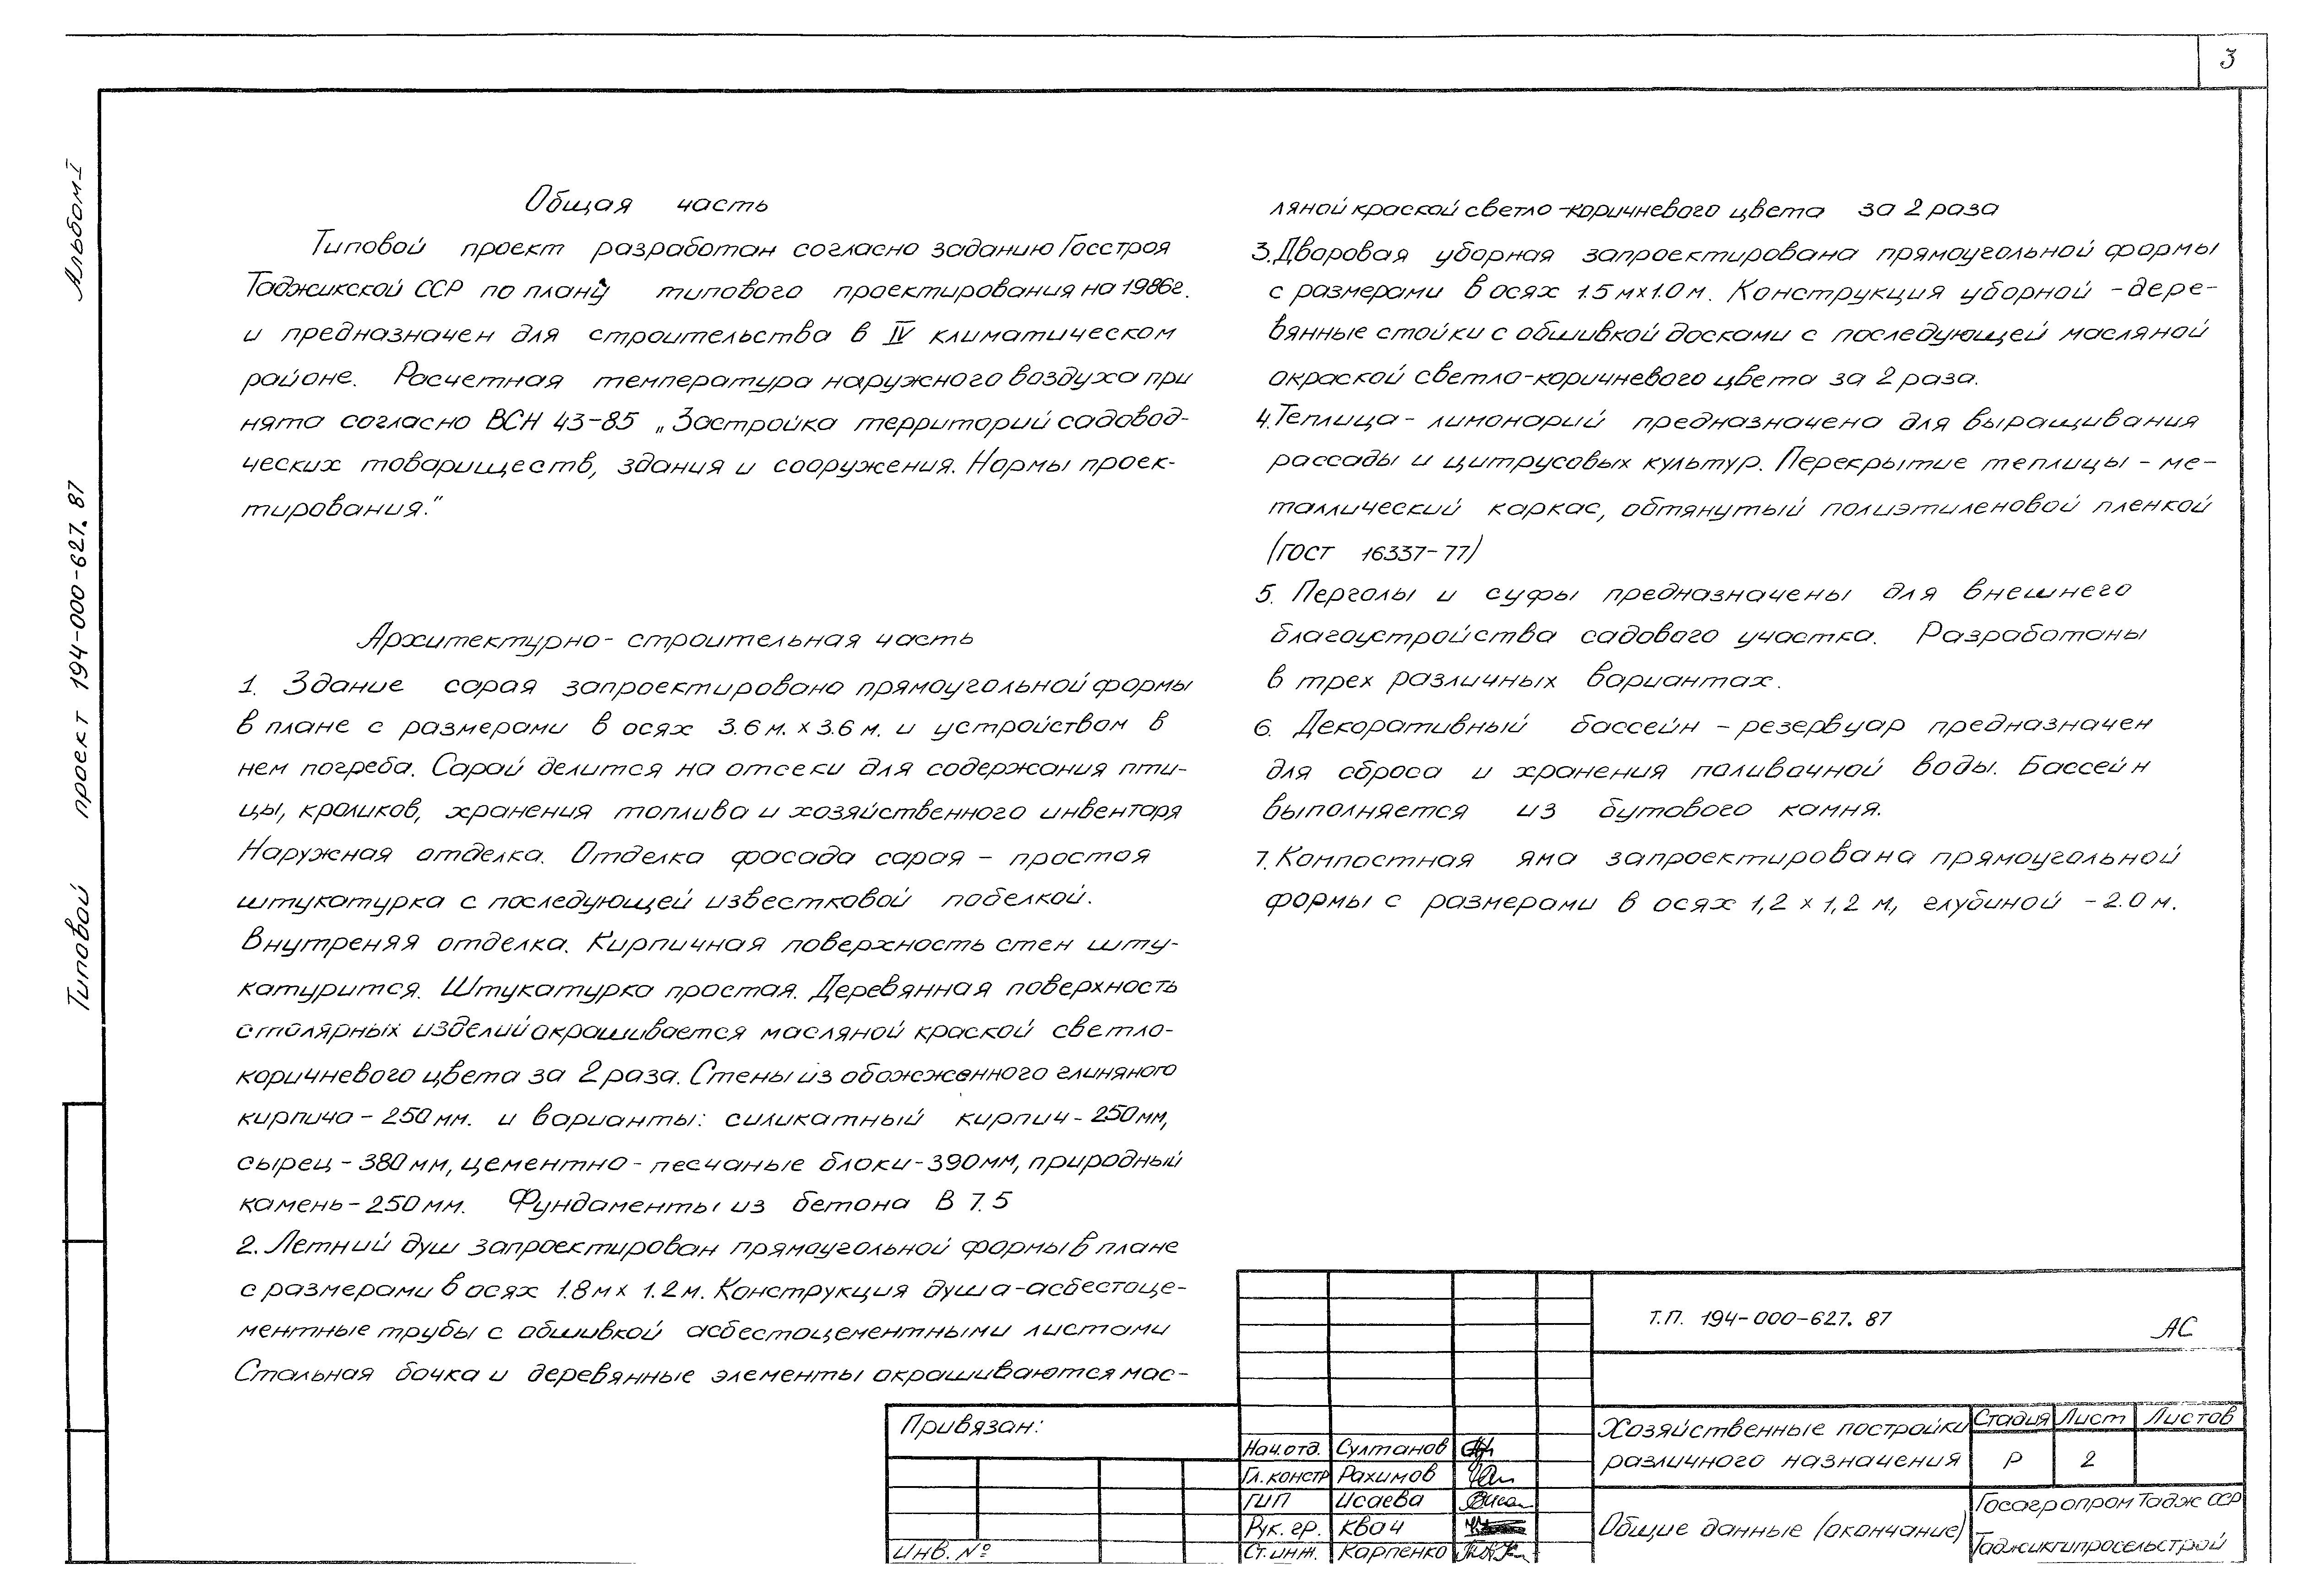 3
Альбом I
Типовой проект 194-000-627.87
Общая часть
Типовой проект разработан согласно заданию Госстроя
Таджикской ССР по плану типового проектирования на 1986г.
и предназначен для строительства в IV климатическом
районе. Расчетная температура наружного воздуха при
нята согласно ВСН 43-85 „Застройка территорий садовод-
ческих товариществ, здания и сооружения. Нормы проек-
тирования."
Архитектурно-строительная часть
1. Здание сарая запроектировано прямоугольной формы
в плане с размерами в осях 3.6 м. х 3.6 м. и устройством в
нем погреба. Сарай делится на отсеки для содержания пти-
цы, кроликов, хранения топлива и хозяйственного инвентаря
Наружная отделка. Отделка фасада сарая – простая
штукатурка с последующей известковой побелкой.
Внутреняя отделка. Кирпичная поверхность стен шту-
катурится. Штукатурка простая. Деревянная поверхность
столярных изделий окрашивается масляной краской светло-
коричневого цвета за 2 раза. Стены из обожженного глиняного
кирпича – 250 мм. и варианты: силикатный кирпич - 250 мм,
сырец - 380 мм, цементно - песчаные блоки - 390 мм, природный
камень - 250 мм. Фундаменты из бетона В 7.5
2. Летний душ запроектирован прямоугольной формы в плане
с размерами в осях 1.8 м х 1.2 м. Конструкция душа-асбестоце-
ментные трубы с обшивкой асбестоцементными листами
Стальная бочка и деревянные элементы окрашиваются мас-
ляной краской светло-коричневого цвета за 2 раза
3. Дворовая уборная запроектирована прямоугольной формы
с размерами в осях 1.5 м х 1.0 м. Конструкция уборной - дере-
вянные стойки с обшивкой досками с последующей масляной
окраской светло-коричневого цвета за 2 раза.
4. Теплица - лимонарий предназначена для выращивания
рассады и цитрусовых культур. Перекрытие теплицы - ме-
таллический каркас, обтянутый полиэтиленовой пленкой
(ГОСТ 16337-77)
5. Перголы и суфы предназначены для внешнего
благоустройства садового участка. Разработаны
в трех различных вариантах.
6. Декоративный бассейн - резервуар предназначен
для сброса и хранения поливочной воды. Бассейн
выполняется из бутового камня.
7. Компостная яма запроектирована прямоугольной
формы с размерами в осях 1,2 х 1,2 м, глубиной - 2.0 м.
Т.П. 194-000-627.87
АС
Привязан:
Инв. №
Нач. отд. Султанов
Гл. констр Рахимов
ГИП Исаева
Рук. гр. Квач
Ст. инж. Карпенко
Хозяйственные постройки
различного назначения
Стадия Лист Листов
Р 2
Общие данные (окончание)
Госагропром Тадж ССР
Таджикгипросельстрой